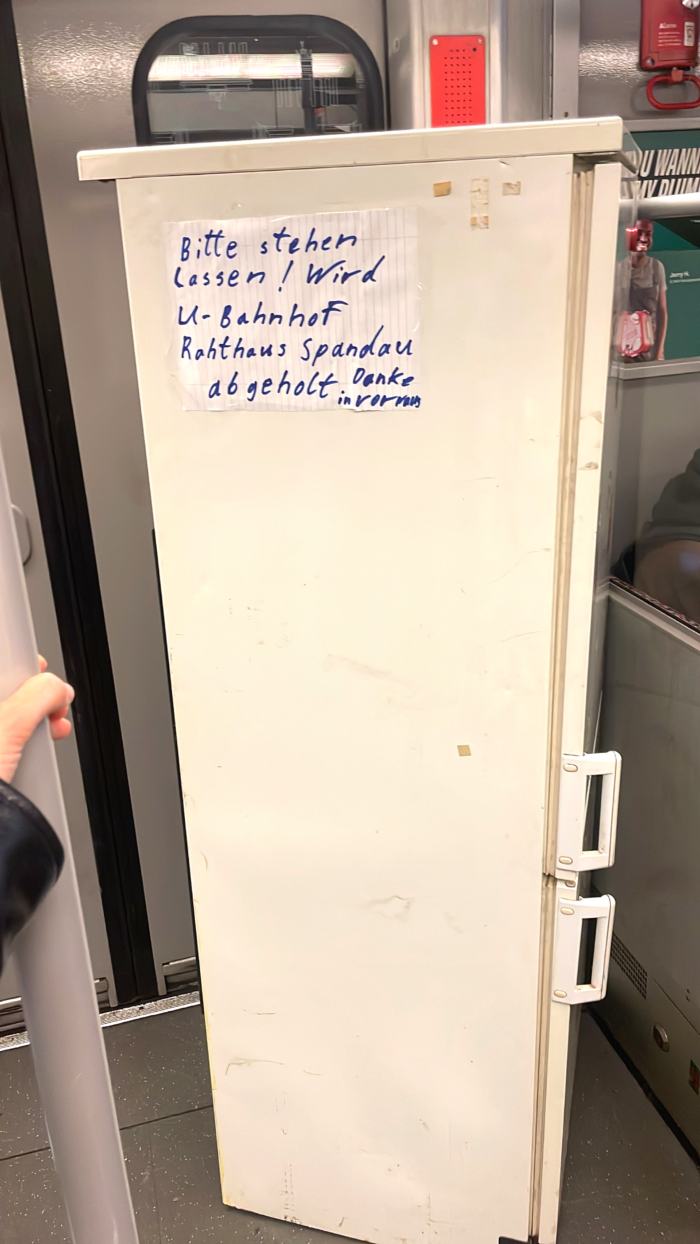 Bitte stehen
lassen! Wird
U-Bahnhof
Rahthaus Spandau
abgeholt Danke
in vorraus
OU WANN
Jerry H.